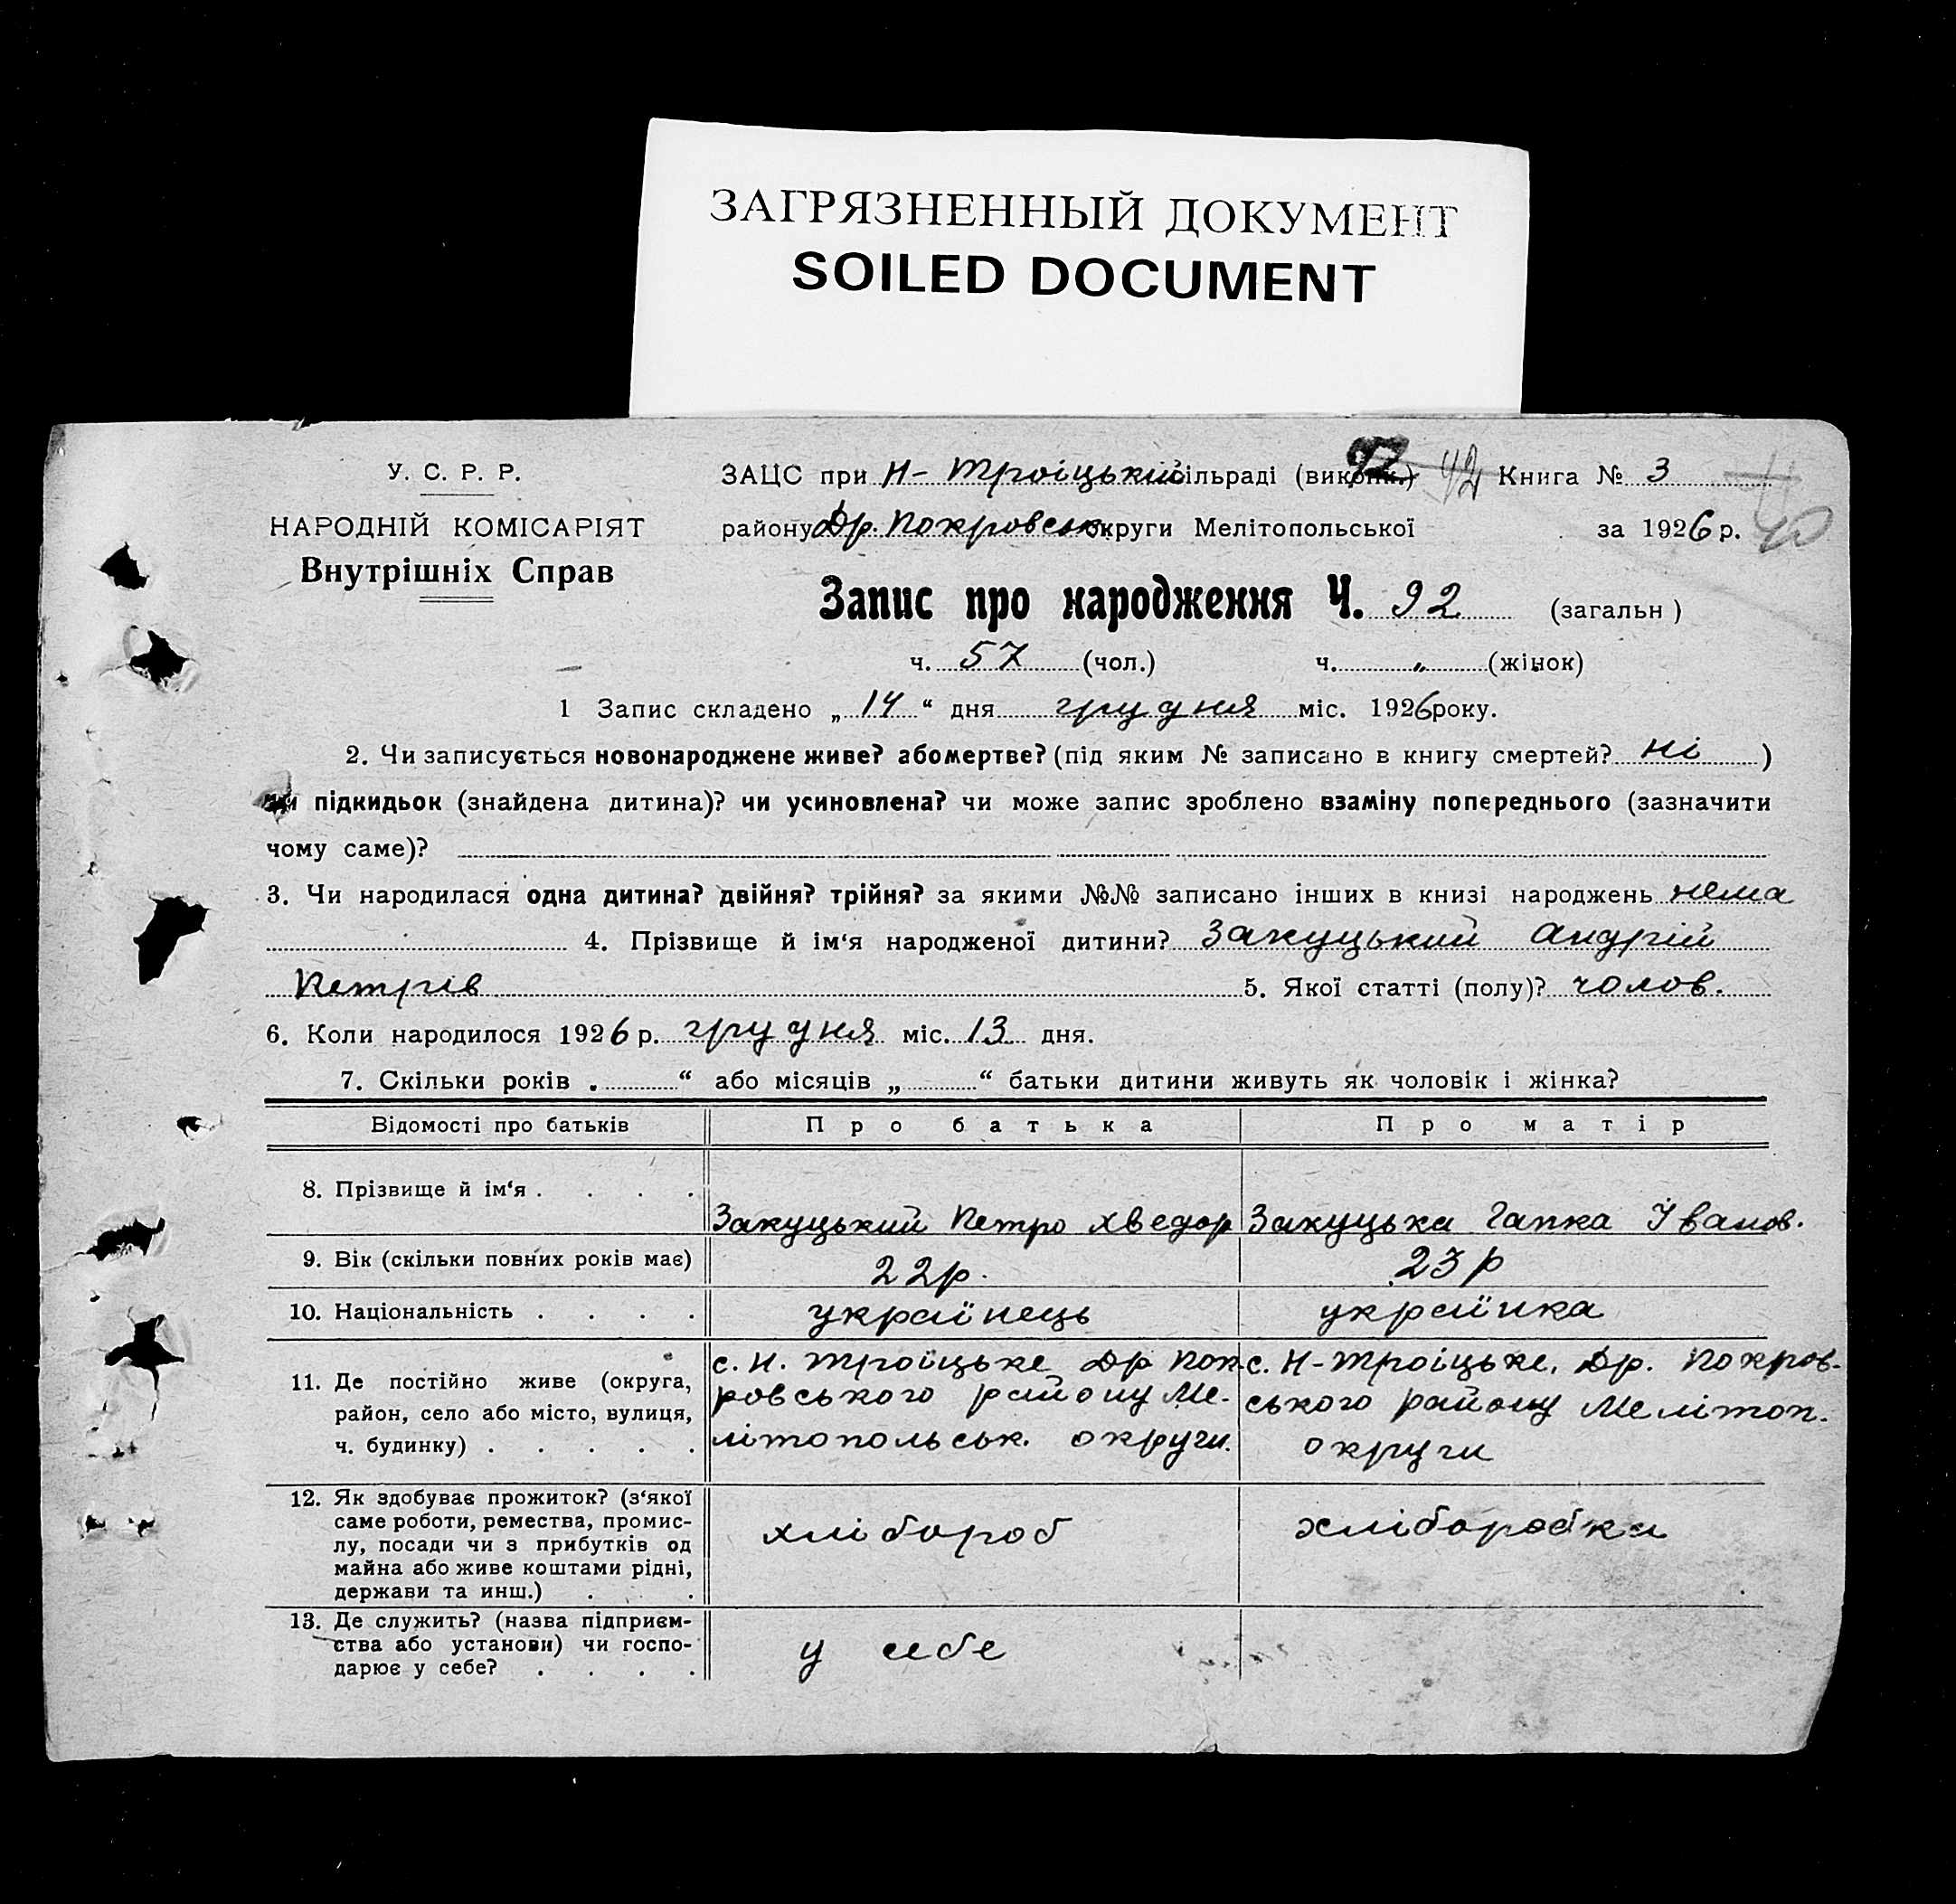 ЗАГРЯЗНЕННЫЙ ДОКУМЕНТ
SOILED DOCUMENT
У. С. Р. Р.
НАРОДНІЙ КОМІСАРІЯТ
Внутрішніх Справ
ЗАЦС при Н- Троіцький сільраді (викопк.) 92 Книга № 3
району Др. Покровськ. округи Мелітопольської за 1926 р. 40
Запис про народження Ч. 92 (загальн )
ч. 57 (чол.) ч. „ (жінок)
1 Запис складено „ 14 “ дня грудня міс. 1926 року.
2. Чи записується новонароджене живе? або мертве? (під яким № записано в книгу смертей? ні )
чи підкидьок (знайдена дитина)? чи усиновлена? чи може запис зроблено взаміну попереднього (зазначити
чому саме)?
3. Чи народилася одна дитина? двійня? трійня? за якими №№ записано інших в книзі народжень нема
4. Прізвище й ім‘я народженої дитини? Закуцький Андрій
Петрів 5. Якої статті (полу)? чолов.
6. Коли народилося 1926 р. грудня міс. 13 дня.
7. Скільки років „ “ або місяців „ “ батьки дитини живуть як чоловік і жінка?
Відомості про батьків Про батька Про матір
8. Прізвище й ім‘я . . . . Закуцький Петро Хведор Закуцька Гапка Іванов.
9. Вік (скільки повних років має) 22р. 23р
10. Національність . . . . українець українка
11. Де постійно живе (округа, район, село або місто, вулиця, ч. будинку) . . . . .
с. Н. Троїцьке Др Пок-
ровського району Ме-
літопольськ. округи.
с. Н-Троіцьке, Др. Покров-
ського району Мелітоп.
округи
12. Як здобуває прожиток? (з‘якої
саме роботи, ремества, промис-
лу, посади чи з прибутків од
майна або живе коштами рідні,
держави та инш.) . . .
хлібороб хліборобка
13. Де служить? (назва підприєм-
ства або установи) чи госпо-
дарює у себе? . . . .
у себе